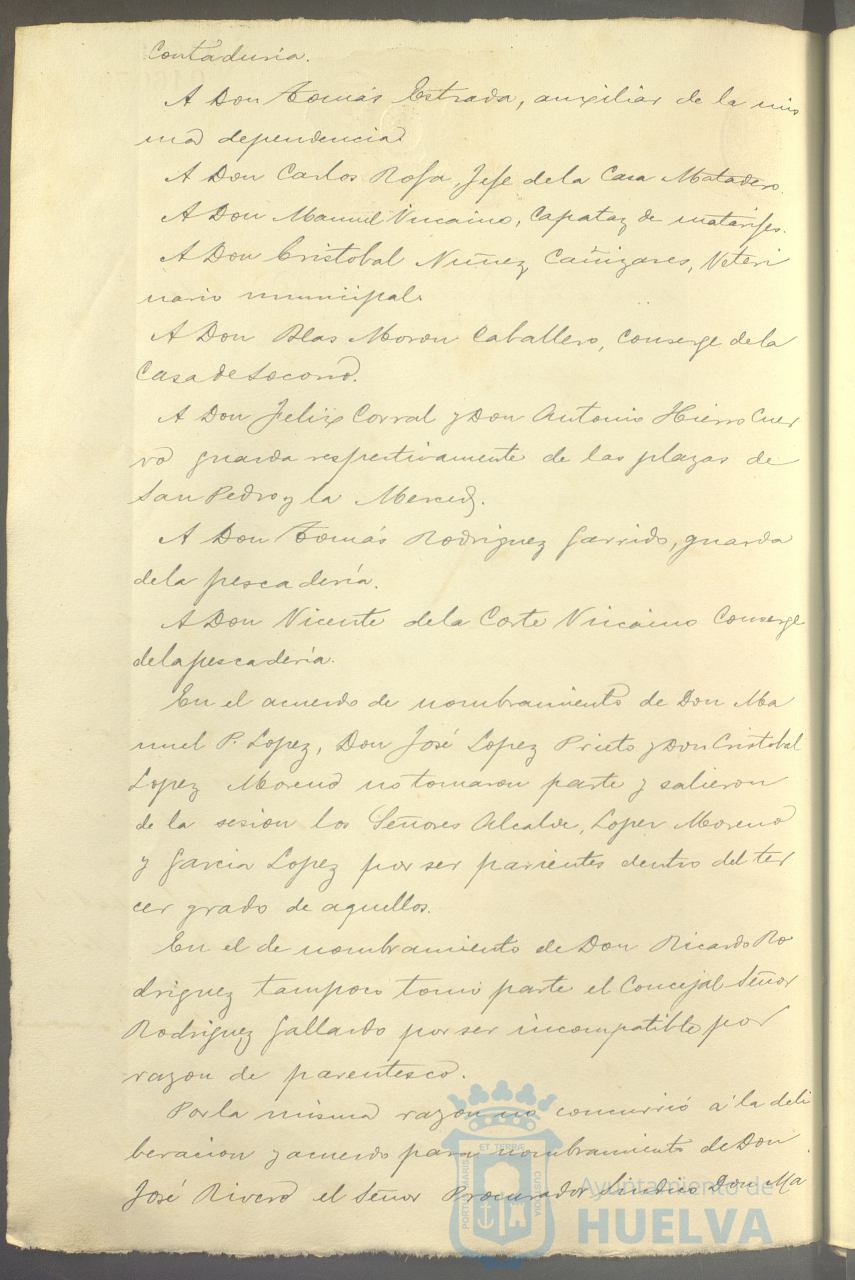 Contaduria.
A Don Tomás Estrada, auxiliar de la mis
ma dependencia
A Don Carlos Rosa, Jefe de la Casa Matadero.
A Don Manuel Vizcaino, Capataz de matarifes.
A Don Cristobal Nuñez Cañizares, Veteri
nario municipal.
A Don Blas Moron Caballero, Conserge de la
Casa de Socorro.
A Don Felix Corral y Don Antonio Hierro Cuer
vo guarda respectivamente de las plazas de
San Pedro y la Merced.
A Don Tomás Rodriguez Garrido, guarda
de la pescadería.
A Don Vicente de la Corte Vizcaino Conserge
de la pescadería.
En el acuerdo de nombramiento de Don Ma
nuel P. Lopez, Don José Lopez Prieto y Don Cristobal
Lopez Moreno no tomaron parte y salieron
de la sesion los Señores Alcalde, Lopez Moreno
y Garcia Lopez por ser parientes dentro del ter
cer grado de aquellos.
En el de nombramiento de Don Ricardo Ro
driguez tampoco tomó parte el Concejal Señor
Rodriguez Gallardo por ser incompatible por
razon de parentesco.
Por la misma razon no concurrió á la deli
beracion y acuerdo para nombramiento de Don
José Rivero el Señor Procurador Sindico Don Ma
PORTUS MARIS ET TERRÆ CUSTODIA
Ayuntamiento de
HUELVA